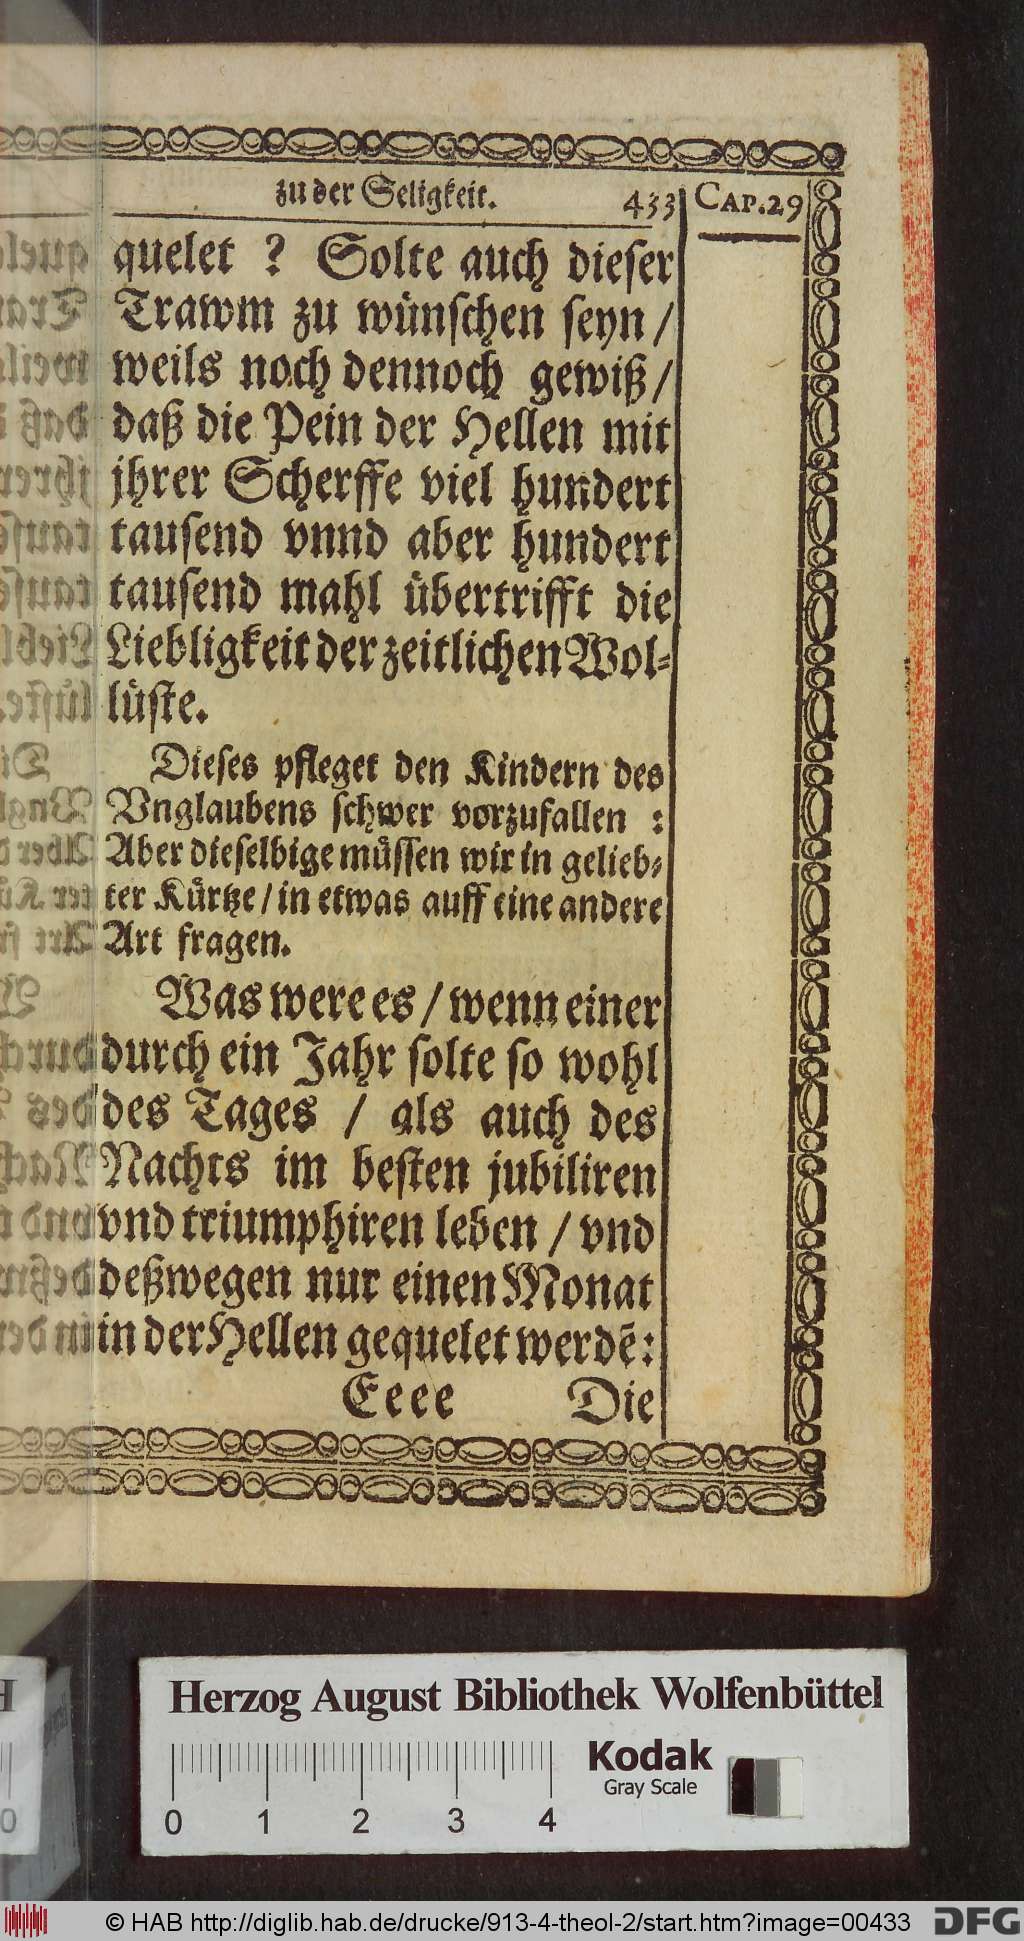 zu der Seligkeit. 433 CAP.29
quelet ? Solte auch dieser
Trawm zu wünschen seyn /
weils noch dennoch gewiß /
daß die Pein der Hellen mit
jhrer Scherffe viel hundert
tausend vnnd aber hundert
tausend mahl übertrifft die
Liebligkeit der zeitlichen Wol-
lüste.
Dieses pfleget den Kindern des
Vnglaubens schwer vorzufallen :
Aber dieselbige müssen wir in gelieb-
ter Kürtze / in etwas auff eine andere
Art fragen.
Was were es / wenn einer
durch ein Jahr solte so wohl
des Tages / als auch des
Nachts im besten jubiliren
vnd triumphiren leben / vnd
deßwegen nur einen Monat
in der Hellen gequelet werdẽ :
Eeee Die
Herzog August Bibliothek Wolfenbüttel
Kodak
Gray Scale
0 1 2 3 4
© HAB http://diglib.hab.de/drucke/913-4-theol-2/start.htm?image=00433
DFG